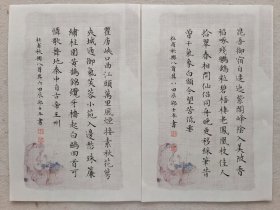 昆吾御宿自逶迤紫閣峰陰入渼陂香
稻啄殘鸚鵡粒碧梧棲老鳳凰枝佳人
拾翠春相問仙侶同舟晚更移綵筆昔
曾干氣象白頭今望苦低垂
杜甫秋興八首其八
瞿唐峽口曲江頭萬里風煙接素秋花萼
夾城通御氣芙蓉小苑入邊愁珠簾
繡柱圍黃鵠錦纜牙檣起白鷗回首可
憐歌舞地秦中自古帝王州
杜甫秋興八首其六